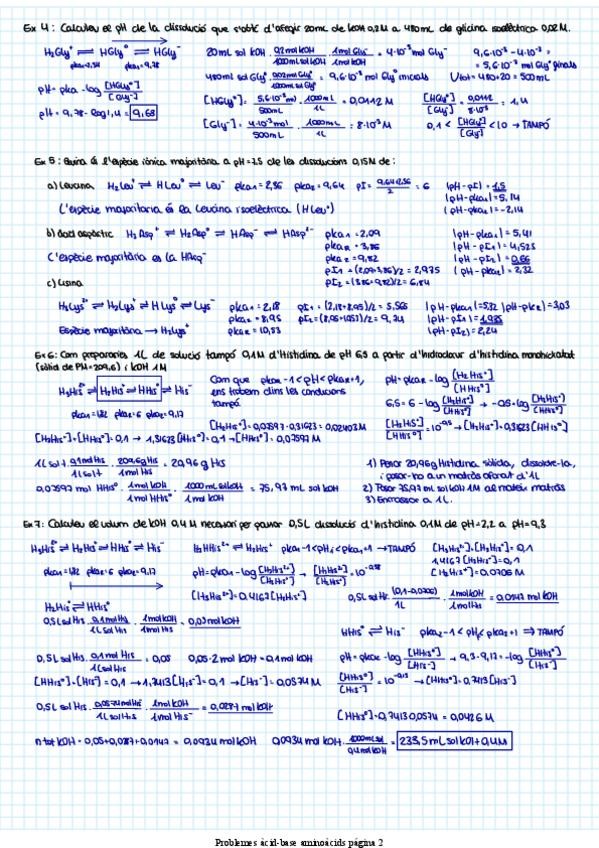 Ex 4: Calculeu el pH de la dissolució que s'obté d'afegir 20mL de KOH 0,2M a 480mL de glicina isoelèctrica 0,02M.
H2Gly+ ⇌ HGly° ⇌ HGly-
pka1=2,34 pka2=9,78
20 mL sol KOH · 0,2 mol KOH/1000 mL sol KOH · 1 mol Gly-/1 mol KOH = 4·10-3 mol Gly-
9,6·10-3 - 4·10-3 =
= 5,6·10-3 mol Gly° finals
480 mL sol Gly° · 0,02 mol Gly°/1000 mL sol Gly° = 9,6·10-3 mol Gly° inicials Vtot = 480+20 = 500mL
pH = pka - log [HGly°]/[Gly-]
pH = 9,78 - log 1,4 = 9,68
[HGly°] = 5,6·10-3 mol/500mL · 1000mL/1L = 0,0112 M
[HGly°]/[Gly-] = 0,0112/8·10-3 = 1,4
[Gly-] = 4·10-3 mol/500mL · 1000mL/1L = 8·10-3 M
0,1 < [HGly°]/[Gly-] < 10 → TAMPÓ
Ex 5: Quina és l'espècie iònica majoritària a pH=7.5 de les dissolucions 0,15M de:
a) Leucina H2Leu+ ⇌ HLeu° ⇌ Leu- pka1 = 2,36 pka2 = 9,64 pI = 9,64+2,36/2 = 6
|pH-pI| = 1,5
|pH-pka1| = 5,14
|pH-pka2| = -2,14
L'espècie majoritària és la leucina isoelèctrica (HLeu°)
b) àcid aspàrtic H3Asp+ ⇌ H2Asp° ⇌ HAsp- ⇌ HAsp2-
pka1 = 2,09
pkaR = 3,86
pka2 = 9,82
pI1 = (2,09+3,86)/2 = 2,975
pI2 = (3,86+9,82)/2 = 6,84
|pH-pka1| = 5,41
|pH-pI1| = 4,525
|pH-pI2| = 0,66
|pH-pka2| = 2,32
L'espècie majoritària es la HAsp-
c) Lisina
H3Lys2+ ⇌ H2Lys+ ⇌ HLys° ⇌ Lys-
pka1 = 2,18
pka2 = 8,95
pkaR = 10,53
pI1 = (2,18+8,95)/2 = 5,565
pI2 = (8,95+10,53)/2 = 9,74
|pH-pka1| = 5,32 |pH-pkR| = 3,03
|pH-pI1| = 1,935
|pH-pI2| = 2,24
Espècie majoritària → H2Lys+
Ex 6: Com prepararies 1L de solució tampó 0,1M d'Histidina de pH 6,5 a partir d'hidroclorur d'histidina monohidratat
(sòlid de PM=209,6) i KOH 1M
H3His2+ ⇌ H2His+ ⇌ HHis° ⇌ His-
pka1=1,82 pkaR=6 pka2=9,17
Com que pkaR-1<pH<pkaR+1,
ens trobem dins les condicions
tampó
pH = pkaR - log [H2His+]/[HHis°]
6,5 = 6 - log [H2His+]/[HHis°] → -0,5 = log [H2His+]/[HHis°]
[H2His+] = 0,07597·0,31623 = 0,02403 M
[H2His+]/[HHis°] = 10-0,5 → [H2His+] = 0,31623 [HHis°]
[H2His+]+[HHis°] = 0,1 → 1,31623 [HHis°] = 0,1 → [HHis°] = 0,07597 M
1L sol · 0,1 mol His/1L sol · 209,6g His/1 mol His = 20,96 g His
0,07597 mol HHis° · 1 mol KOH/1 mol HHis° · 1000 mL sol KOH/1 mol KOH = 75,97 mL sol KOH
1) Pesar 20,96g Histidina sòlida, dissoldre-la,
i posar-ho a un matràs aforat d'1L
2) Posar 75,97 mL sol KOH 1M al mateix matràs
3) Enrassar a 1L.
Ex 7: Calculeu el volum de KOH 0,4 M necessari per passar 0,5L dissolució d'histidina 0,1M de pH=2,2 a pH=9,3
H3His2+ ⇌ H2His+ ⇌ HHis° ⇌ His-
pka1=1,82 pkaR=6 pka2=9,17
H3His2+ ⇌ H2His+ pka1-1<pHi<pka1+1 → TAMPÓ
pH = pka1 - log [H3His2+]/[H2His+] → [H3His2+]/[H2His+] = 10-0,38
[H3His2+] = 0,4167 [H2His+]
[H3His2+]+[H2His+] = 0,1
1,4167 [H2His+] = 0,1
[H2His+] = 0,0706 M
0,5L sol His · (0,1-0,0706)/1L · 1 mol KOH/1 mol His = 0,0147 mol KOH
H2His+ ⇌ HHis°
0,5L sol His · 0,1 mol His/1L sol His · 1 mol KOH/1 mol His = 0,05 mol KOH
HHis° ⇌ His- pka2-1<pHf<pka2+1 ⇒ TAMPÓ
0,5L sol His · 0,1 mol His/1L sol His = 0,05 0,05·2 mol KOH = 0,1 mol KOH
pH = pka2 - log [HHis°]/[His-] → 9,3-9,17 = -log [HHis°]/[His-]
[HHis°]+[His-] = 0,1 → 1,7413 [His-] = 0,1 → [His-] = 0,0574 M
[HHis°]/[His-] = 10-0,13 → [HHis°] = 0,7413 [His-]
0,5L sol His · 0,0574 mol His/1L sol His · 1 mol KOH/1 mol His- = 0,0287 mol KOH
[HHis°] = 0,7413·0,0574 = 0,0426 M
n tot KOH = 0,05+0,0287+0,0147 = 0,0934 mol KOH 0,0934 mol KOH · 1000 mL sol/0,4 mol KOH = 233,5 mL sol KOH 0,4M
Problemes àcid-base aminoàcids página 2